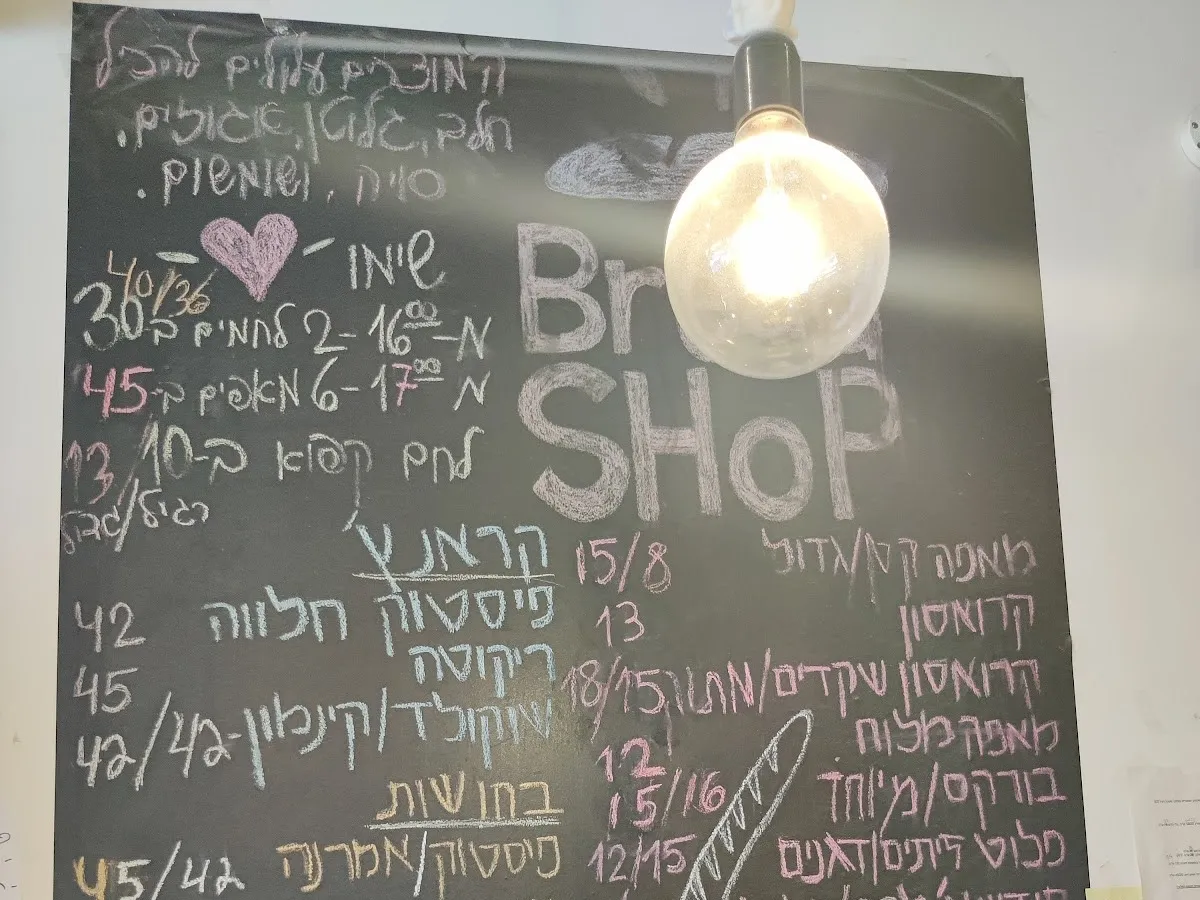 המוצרים עלולים להכיל
חלב, גלוטן, אגוזים,
סויה, ושומשום.
שימו
מ-16:00 - 2 לחמים ב-30 40/36
מ-17:00 - 6 מאפים ב-45
לחם קפוא ב-10/13
רגיל/
Bread
SHoP
מאפה קטן/גדול 15/8
קרואסון 13
קרואסון שקדים/מתוק 18/15
מאפה מלוח 12
בורקס/מיוחד 15/16
פלוט זיתים/דגנים 12/15
קראנץ'
פיסטוק חלווה 42
ריקוטה 45
שוקולד/קינמון - 42/42
בחושות
פיסטוק/אמרנה 45/42